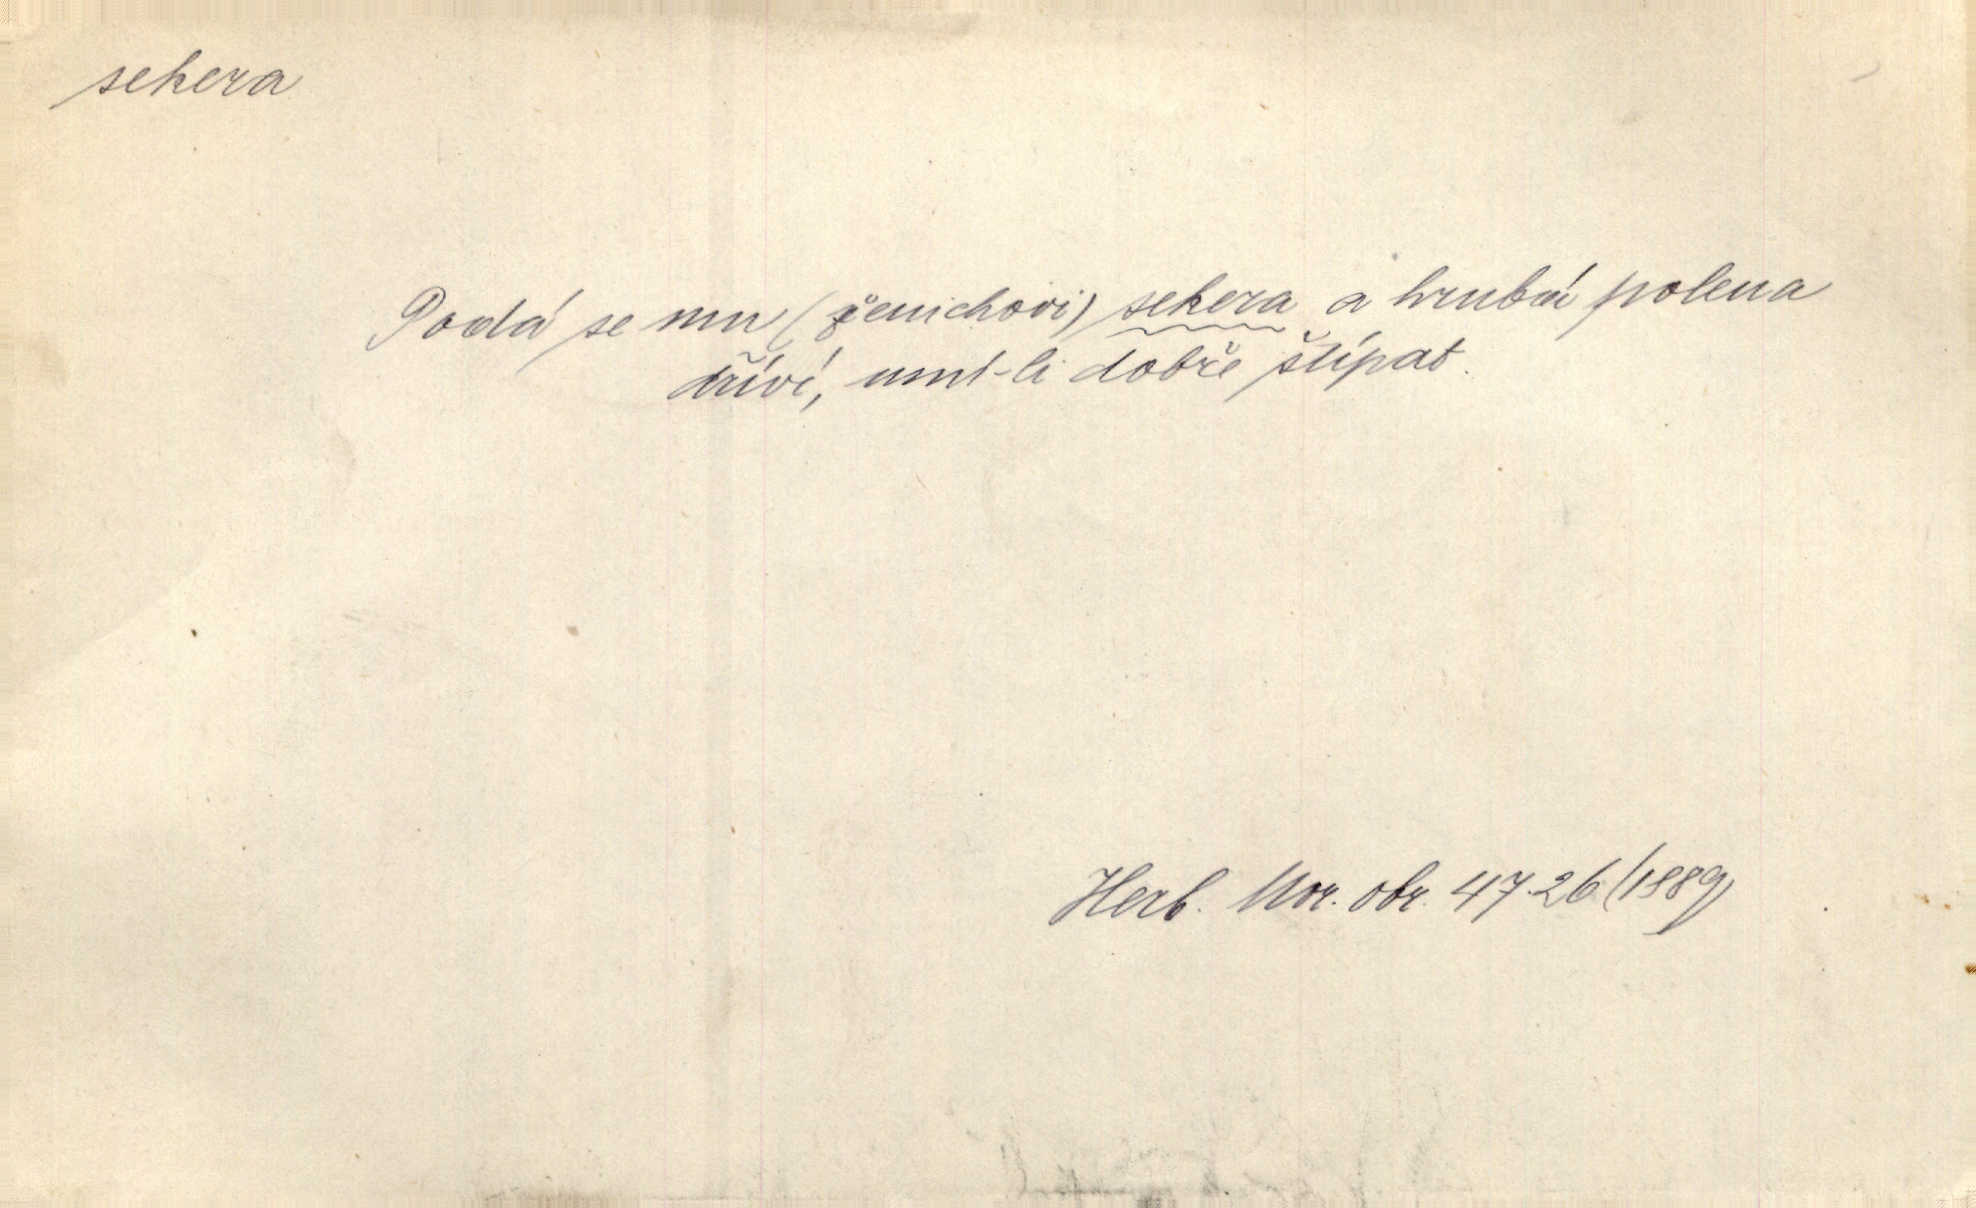 sekera
Podá se mu (ženichovi) sekera a hrubá polena
dříví, umí-li dobře štípat.
Herb. Mor. obr. 47.26 (1889)